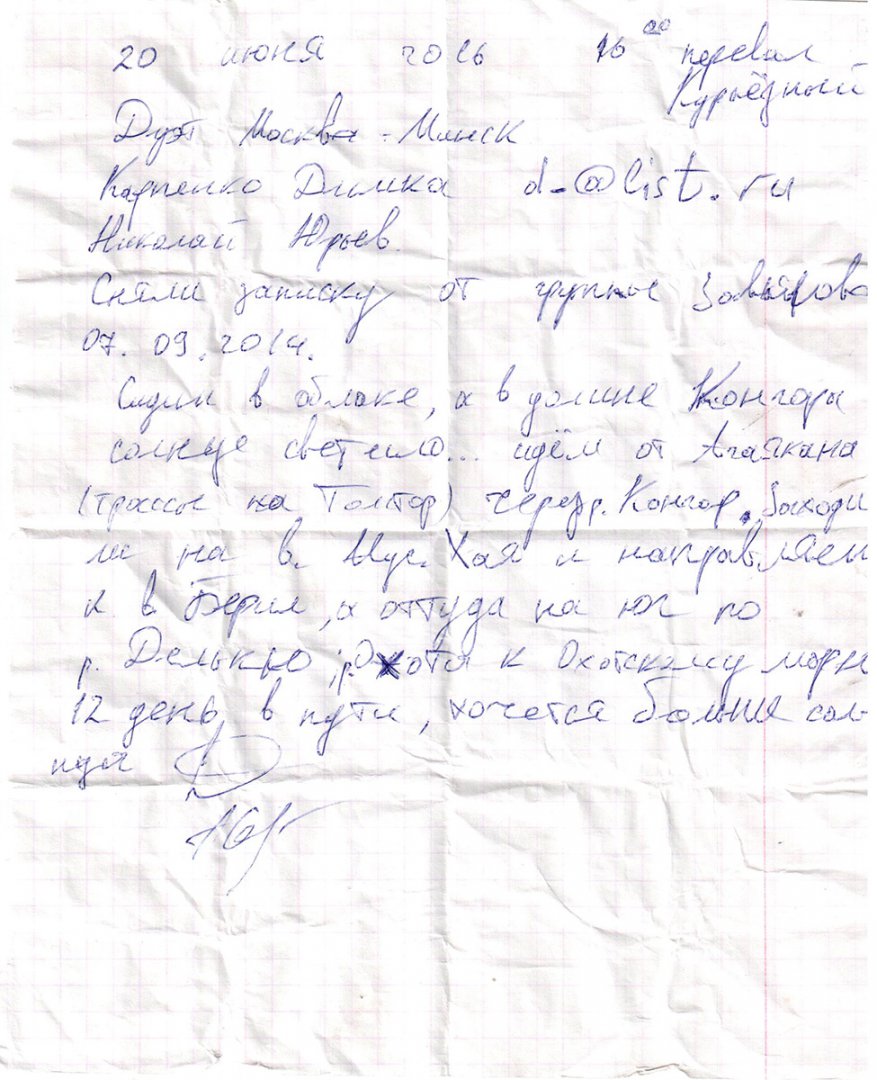 20 июня 2016 16⁰⁰ перевал
Курьёзный
Дуэт Москва - Минск
Карпенко Димка d-@list.ru
Николай Юрьев.
Сняли записку от группы
07.09.2014.
Сидим в облаке, а в долине Конгора
солнце светило... идём от Агаякана
(трассы на Томтор) через р. Конгор. Заходи
ли на в. Мус-Хая и направляем
к в Берил, а оттуда на юг по
р. Делькю, р. Охота к Охотскому морю
12 день в пути, хочется больше сол-
нца